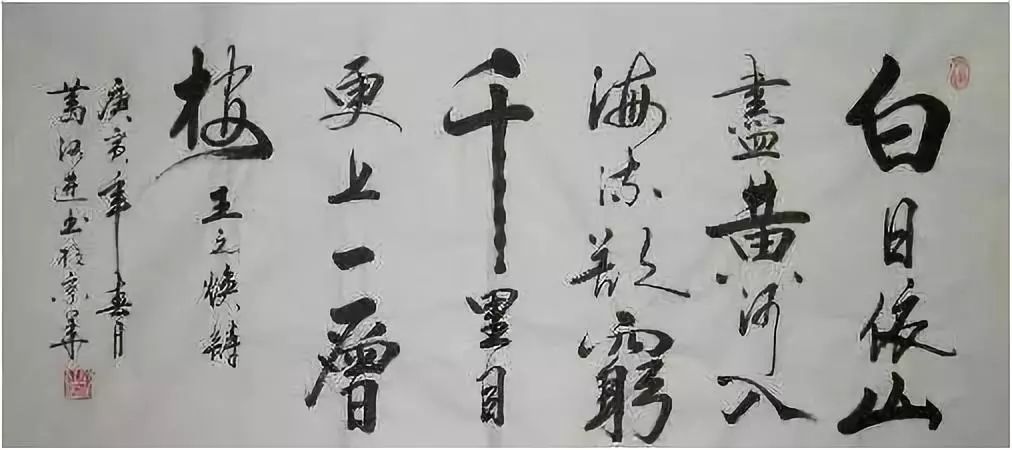 白日依山
盡黄河入
海流欲窮
千里目
更上一層
楼 王之焕詩
庚寅年春月
進书於京華